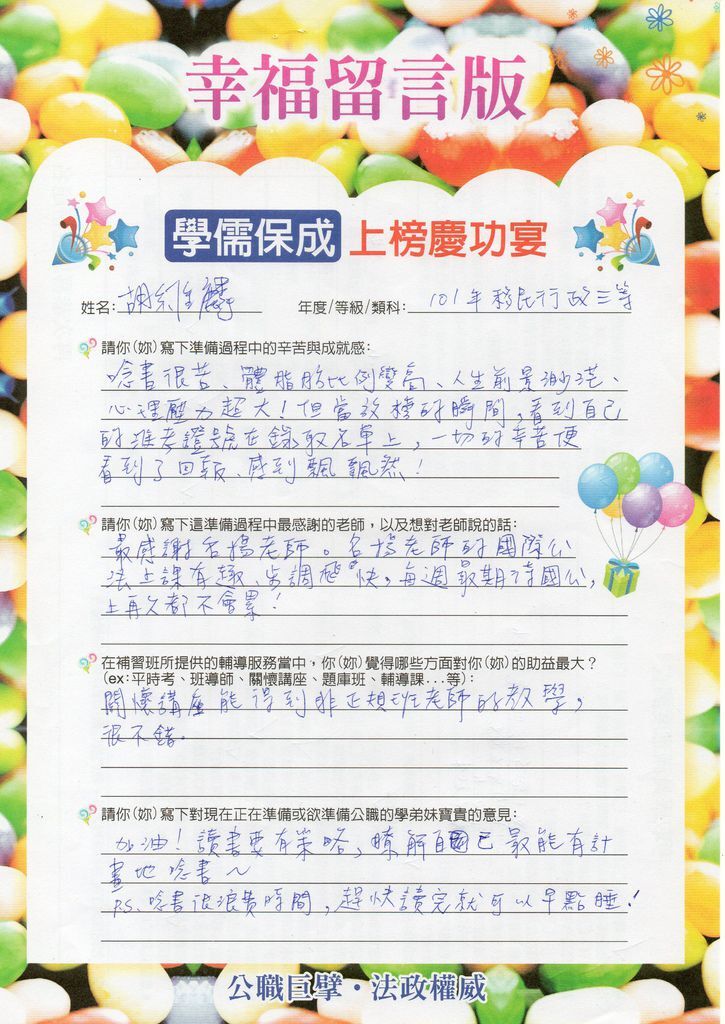 幸福留言版
學儒保成 上榜慶功宴
姓名:胡維麟 年度/等級/類科: 101年移民行政三等
請你(妳)寫下準備過程中的辛苦與成就感:
唸書很苦、體脂肪比例變高、人生前景渺茫、
心理壓力超大!但當放榜的瞬間,看到自己
的准考證號在錄取名單上,一切的辛苦便
看到了回報、感到飄飄然!
請你(妳)寫下這準備過程中最感謝的老師,以及想對老師說的話:
最感謝名揚老師。名揚老師的國際公
法上課有趣、步調輕快,每週最期待國公,
上再久都不會累!
在補習班所提供的輔導服務當中,你(妳)覺得哪些方面對你(妳)的助益最大?
(ex:平時考、班導師、關懷講座、題庫班、輔導課...等):
關懷講座能得到非正規班老師的教學,
很不錯。
請你(妳)寫下對現在正在準備或欲準備公職的學弟妹寶貴的意見:
加油!讀書要有策略,瞭解自己最能有計
畫地唸書~
P.S. 唸書很浪費時間,趕快讀完就可以早點睡!
公職巨擘・法政權威